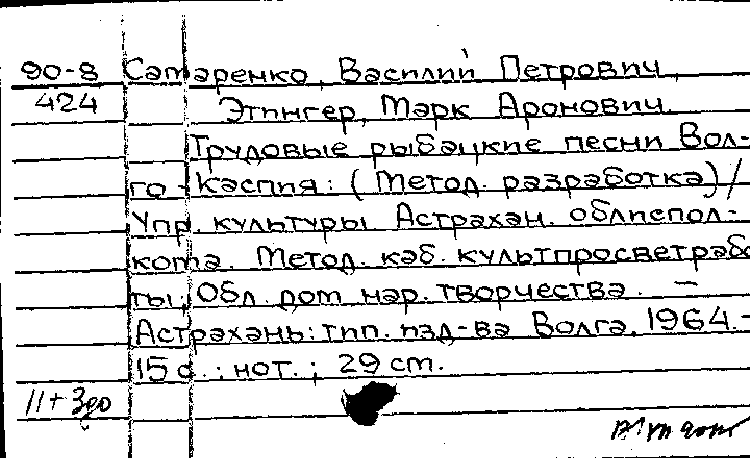 90-8 Самаренко, Василий Петрович,
424 Этингер, Марк Аронович.
Трудовые рыбацкие песни Вол-
го-Каспия: (Метод. разработка) /
Упр. культуры Астрахан. облиспол-
кома. Метод. каб. культпросветрабо
ты, Обл. дом нар. творчества. —
Астрахань: тип. изд-ва Волга, 1964.-
15 с.: нот.; 29 cm.